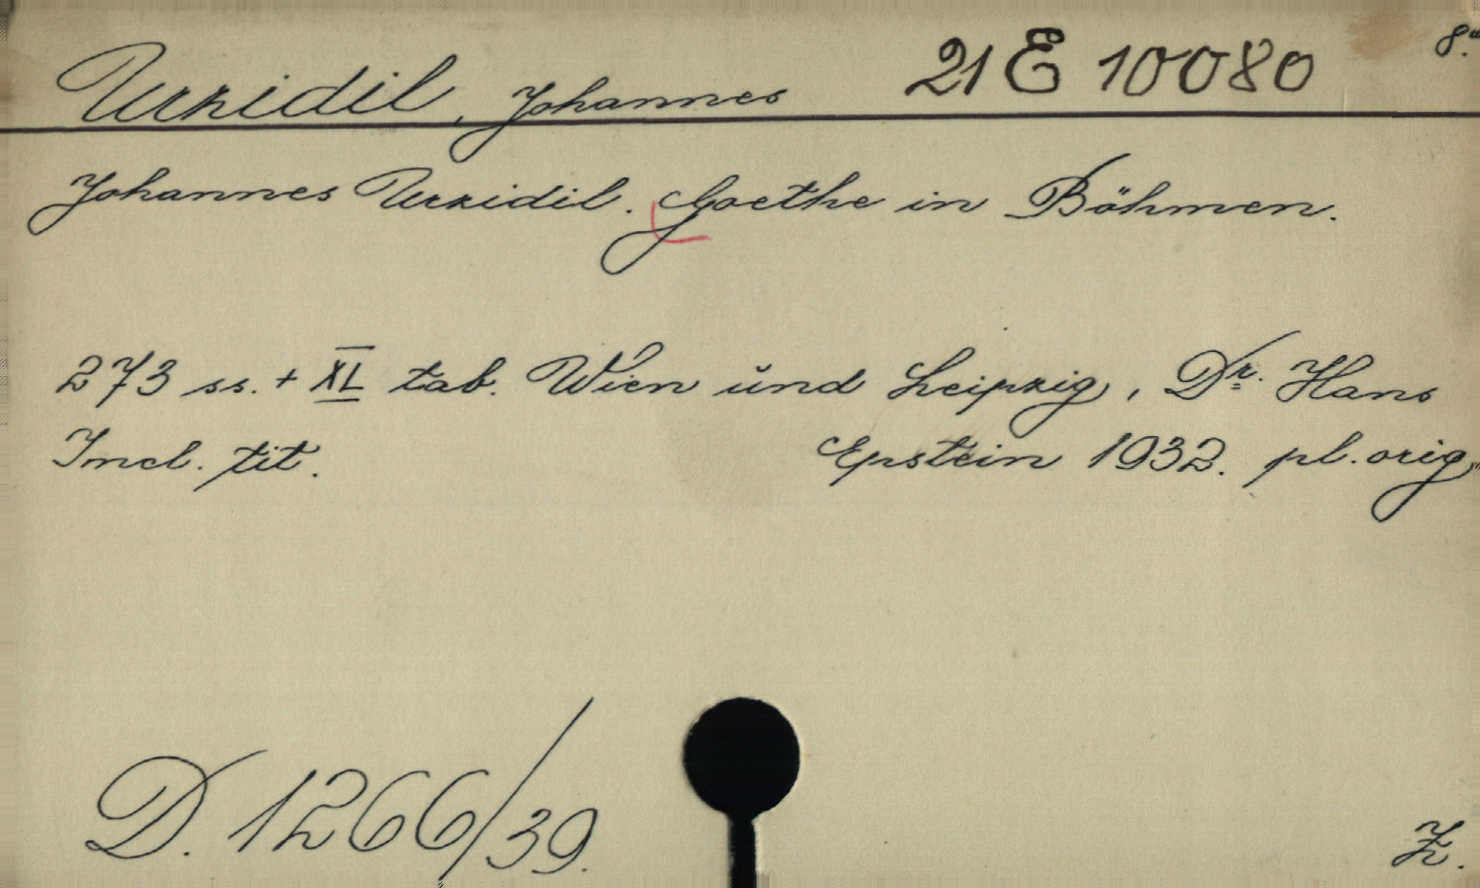 Urzidil, Johannes 21 E 10080 8.°
Johannes Urzidil. Goethe in Böhmen.
273 ss. + XL tab. Wien und Leipzig, Dr. Hans
Incl. tit. Epstein 1932. pl. orig.
D. 1266/39.
Z.